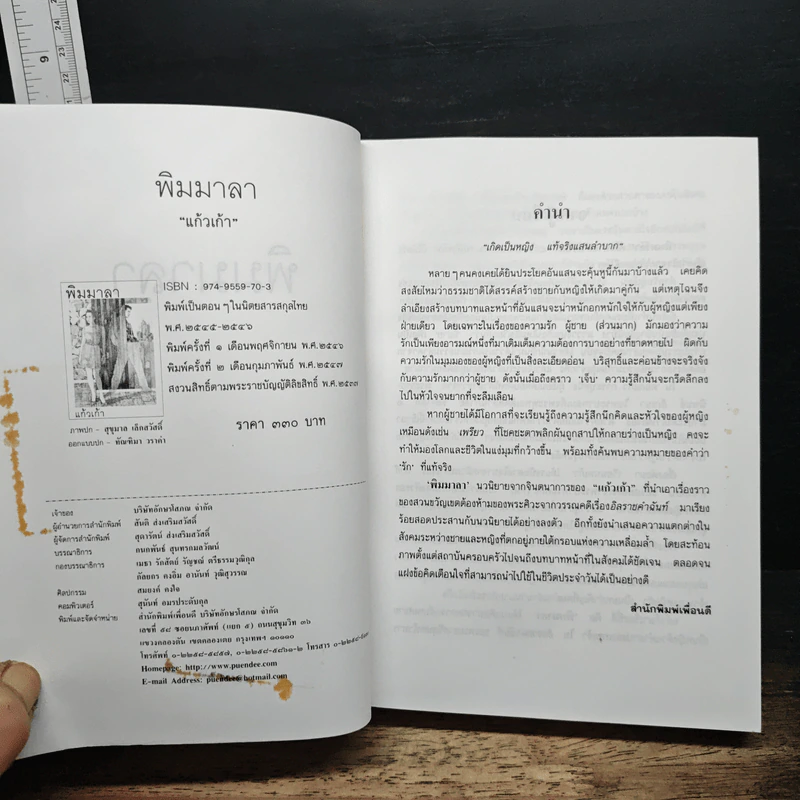 พิมมาลา
"แก้วเก้า"
พิมมาลา
แก้วเก้า
ภาพปก - สุขุมาล เล็กสวัสดิ์
ออกแบบปก - ทัณฑิมา วราคำ
ISBN : 974-9559-70-3
พิมพ์เป็นตอน ๆ ในนิตยสารสกุลไทย
พ.ศ.๒๕๔๕-๒๕๔๖
พิมพ์ครั้งที่ ๑ เดือนพฤศจิกายน พ.ศ.๒๕๔๖
พิมพ์ครั้งที่ ๒ เดือนกุมภาพันธ์ พ.ศ.๒๕๔๗
สงวนสิทธิ์ตามพระราชบัญญัติลิขสิทธิ์ พ.ศ.๒๕๓๗
ราคา ๓๓๐ บาท
เจ้าของ บริษัทอักษรโสภณ จำกัด
ผู้อำนวยการสำนักพิมพ์ สันติ ส่งเสริมสวัสดิ์
ผู้จัดการสำนักพิมพ์ สุดารัตน์ ส่งเสริมสวัสดิ์
บรรณาธิการ กนกพันธ์ สุนทรกมลวัฒน์
กองบรรณาธิการ เมธา รักสัตย์ รัญชณ์ ศรีธรรมวุฒิกุล
กัลยกร คงอิ่ม อานันท์ วุฒิสุวรรณ
ศิลปกรรม สมยงค์ คงใจ
คอมพิวเตอร์ สุนันท์ อมรประดับกุล
พิมพ์และจัดจำหน่าย สำนักพิมพ์เพื่อนดี บริษัทอักษรโสภณ จำกัด
เลขที่ ๕๘ ซอยนภาศัพท์ (แยก ๕) ถนนสุขุมวิท ๓๖
แขวงคลองตัน เขตคลองเตย กรุงเทพฯ ๑๐๑๑๐
โทรศัพท์ ๐-๒๒๕๘-๕๘๕๗, ๐-๒๒๕๘-๕๘๖๑-๒ โทรสาร
Homepage: http://www.puendee.com
E-mail Address: puendee@hotmail.com
คำนำ
"เกิดเป็นหญิง แท้จริงแสนลำบาก"
หลาย ๆ คนคงเคยได้ยินประโยคอันแสนจะคุ้นหูนี้กันมาบ้างแล้ว เคยคิด
สงสัยไหมว่าธรรมชาติได้สรรค์สร้างชายกับหญิงให้เกิดมาคู่กัน แต่เหตุไฉนจึง
ลำเอียงสร้างบทบาทและหน้าที่อันแสนจะน่าหนักอกหนักใจให้กับผู้หญิงแต่เพียง
ฝ่ายเดียว โดยเฉพาะในเรื่องของความรัก ผู้ชาย (ส่วนมาก) มักมองว่าความ
รักเป็นเพียงอารมณ์หนึ่งที่มาเติมเต็มความต้องการบางอย่างที่ขาดหายไป ผิดกับ
ความรักในมุมมองของผู้หญิงที่เป็นสิ่งละเอียดอ่อน บริสุทธิ์และค่อนข้างจะจริงจัง
กับความรักมากกว่าผู้ชาย ดังนั้นเมื่อถึงคราว 'เจ็บ' ความรู้สึกนั้นจะกรีดลึกลง
ไปในหัวใจจนยากที่จะลืมเลือน
หากผู้ชายได้มีโอกาสที่จะเรียนรู้ถึงความรู้สึกนึกคิดและหัวใจของผู้หญิง
เหมือนดังเช่น เพรียว ที่โชคชะตาพลิกผันถูกสาปให้กลายร่างเป็นหญิง คงจะ
ทำให้มองโลกและชีวิตในแง่มุมที่กว้างขึ้น พร้อมทั้งค้นพบความหมายของคำว่า
'รัก' ที่แท้จริง
'พิมมาลา' นวนิยายจากจินตนาการของ "แก้วเก้า" ที่นำเอาเรื่องราว
ของสวนขวัญเขตต้องห้ามของพระศิวะจากวรรณคดีเรื่องอิลราชคำฉันท์ มาเรียง
ร้อยสอดประสานกับนวนิยายได้อย่างลงตัว อีกทั้งยังนำเสนอความแตกต่างใน
สังคมระหว่างชายและหญิงที่ตกอยู่ภายใต้กรอบแห่งความเหลื่อมล้ำ โดยสะท้อน
ภาพตั้งแต่สถาบันครอบครัวไปจนถึงบทบาทหน้าที่ในสังคมได้ชัดเจน ตลอดจน
แฝงข้อคิดเตือนใจที่สามารถนำไปใช้ในชีวิตประจำวันได้เป็นอย่างดี
สำนักพิมพ์เพื่อนดี